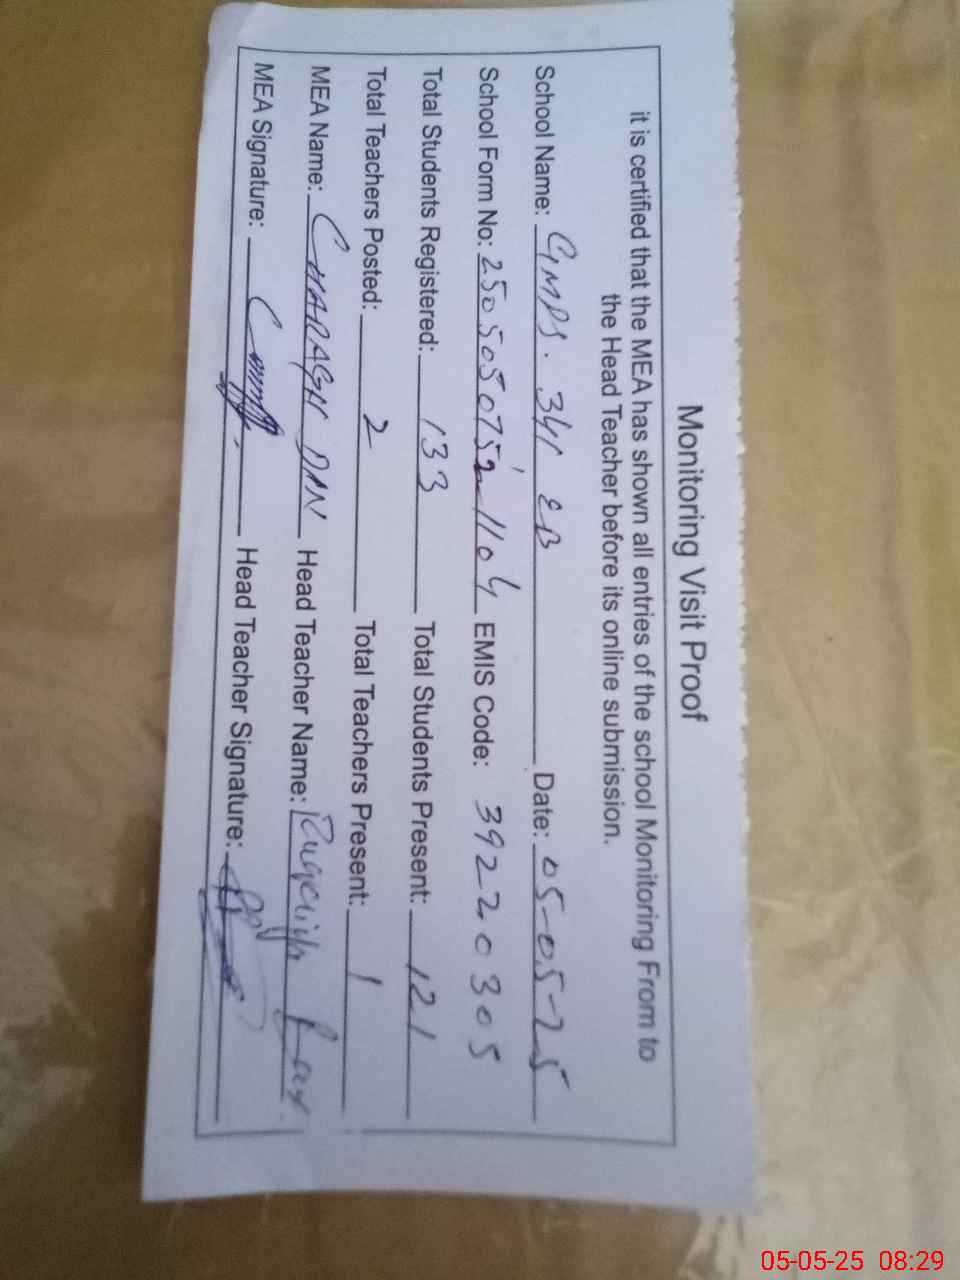 Monitoring Visit Proof
it is certified that the MEA has shown all entries of the school Monitoring From to
the Head Teacher before its online submission.
School Name: GMPS. 341 EB Date: 05-05-25
School Form No: EMIS Code: 39220305
Total Students Registered: 133 Total Students Present: 121
Total Teachers Posted: 2 Total Teachers Present: 1
MEA Name: CHARAGH DIN Head Teacher Name:
MEA Signature: Head Teacher Signature:
05-05-25 08:29